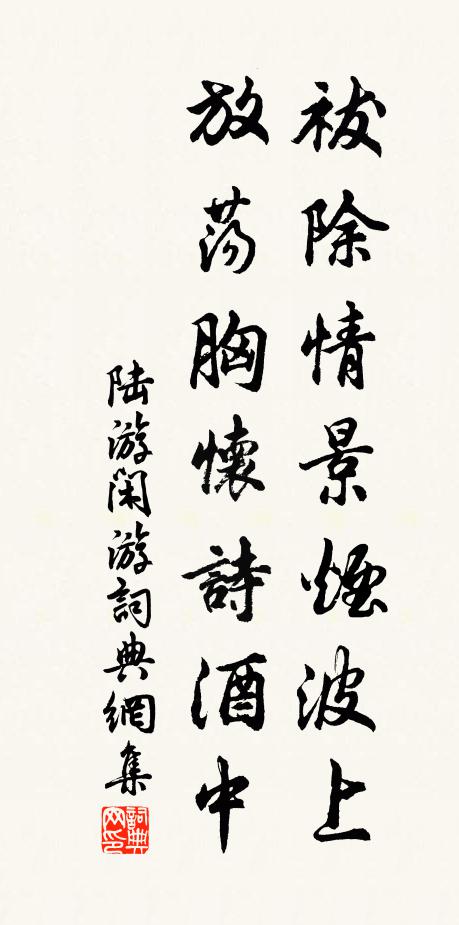 祓除情景煙波上
放蕩胸懷詩酒中
陆游闲游詞典網集
詞典网印